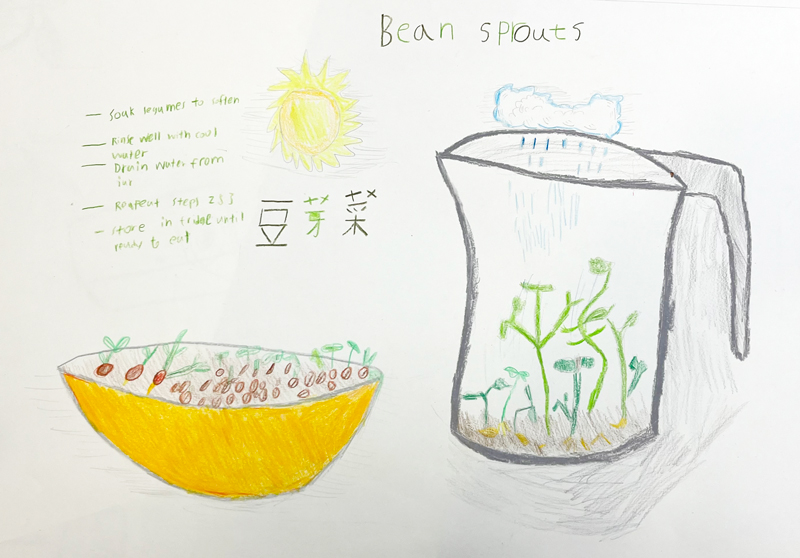 Bean sprouts
— Soak legumes to soften
— Rinse well with cool
water
— Drain water from
jar
— Reapeat steps 2&3
— Store in fridge until
ready to eat
豆芽菜